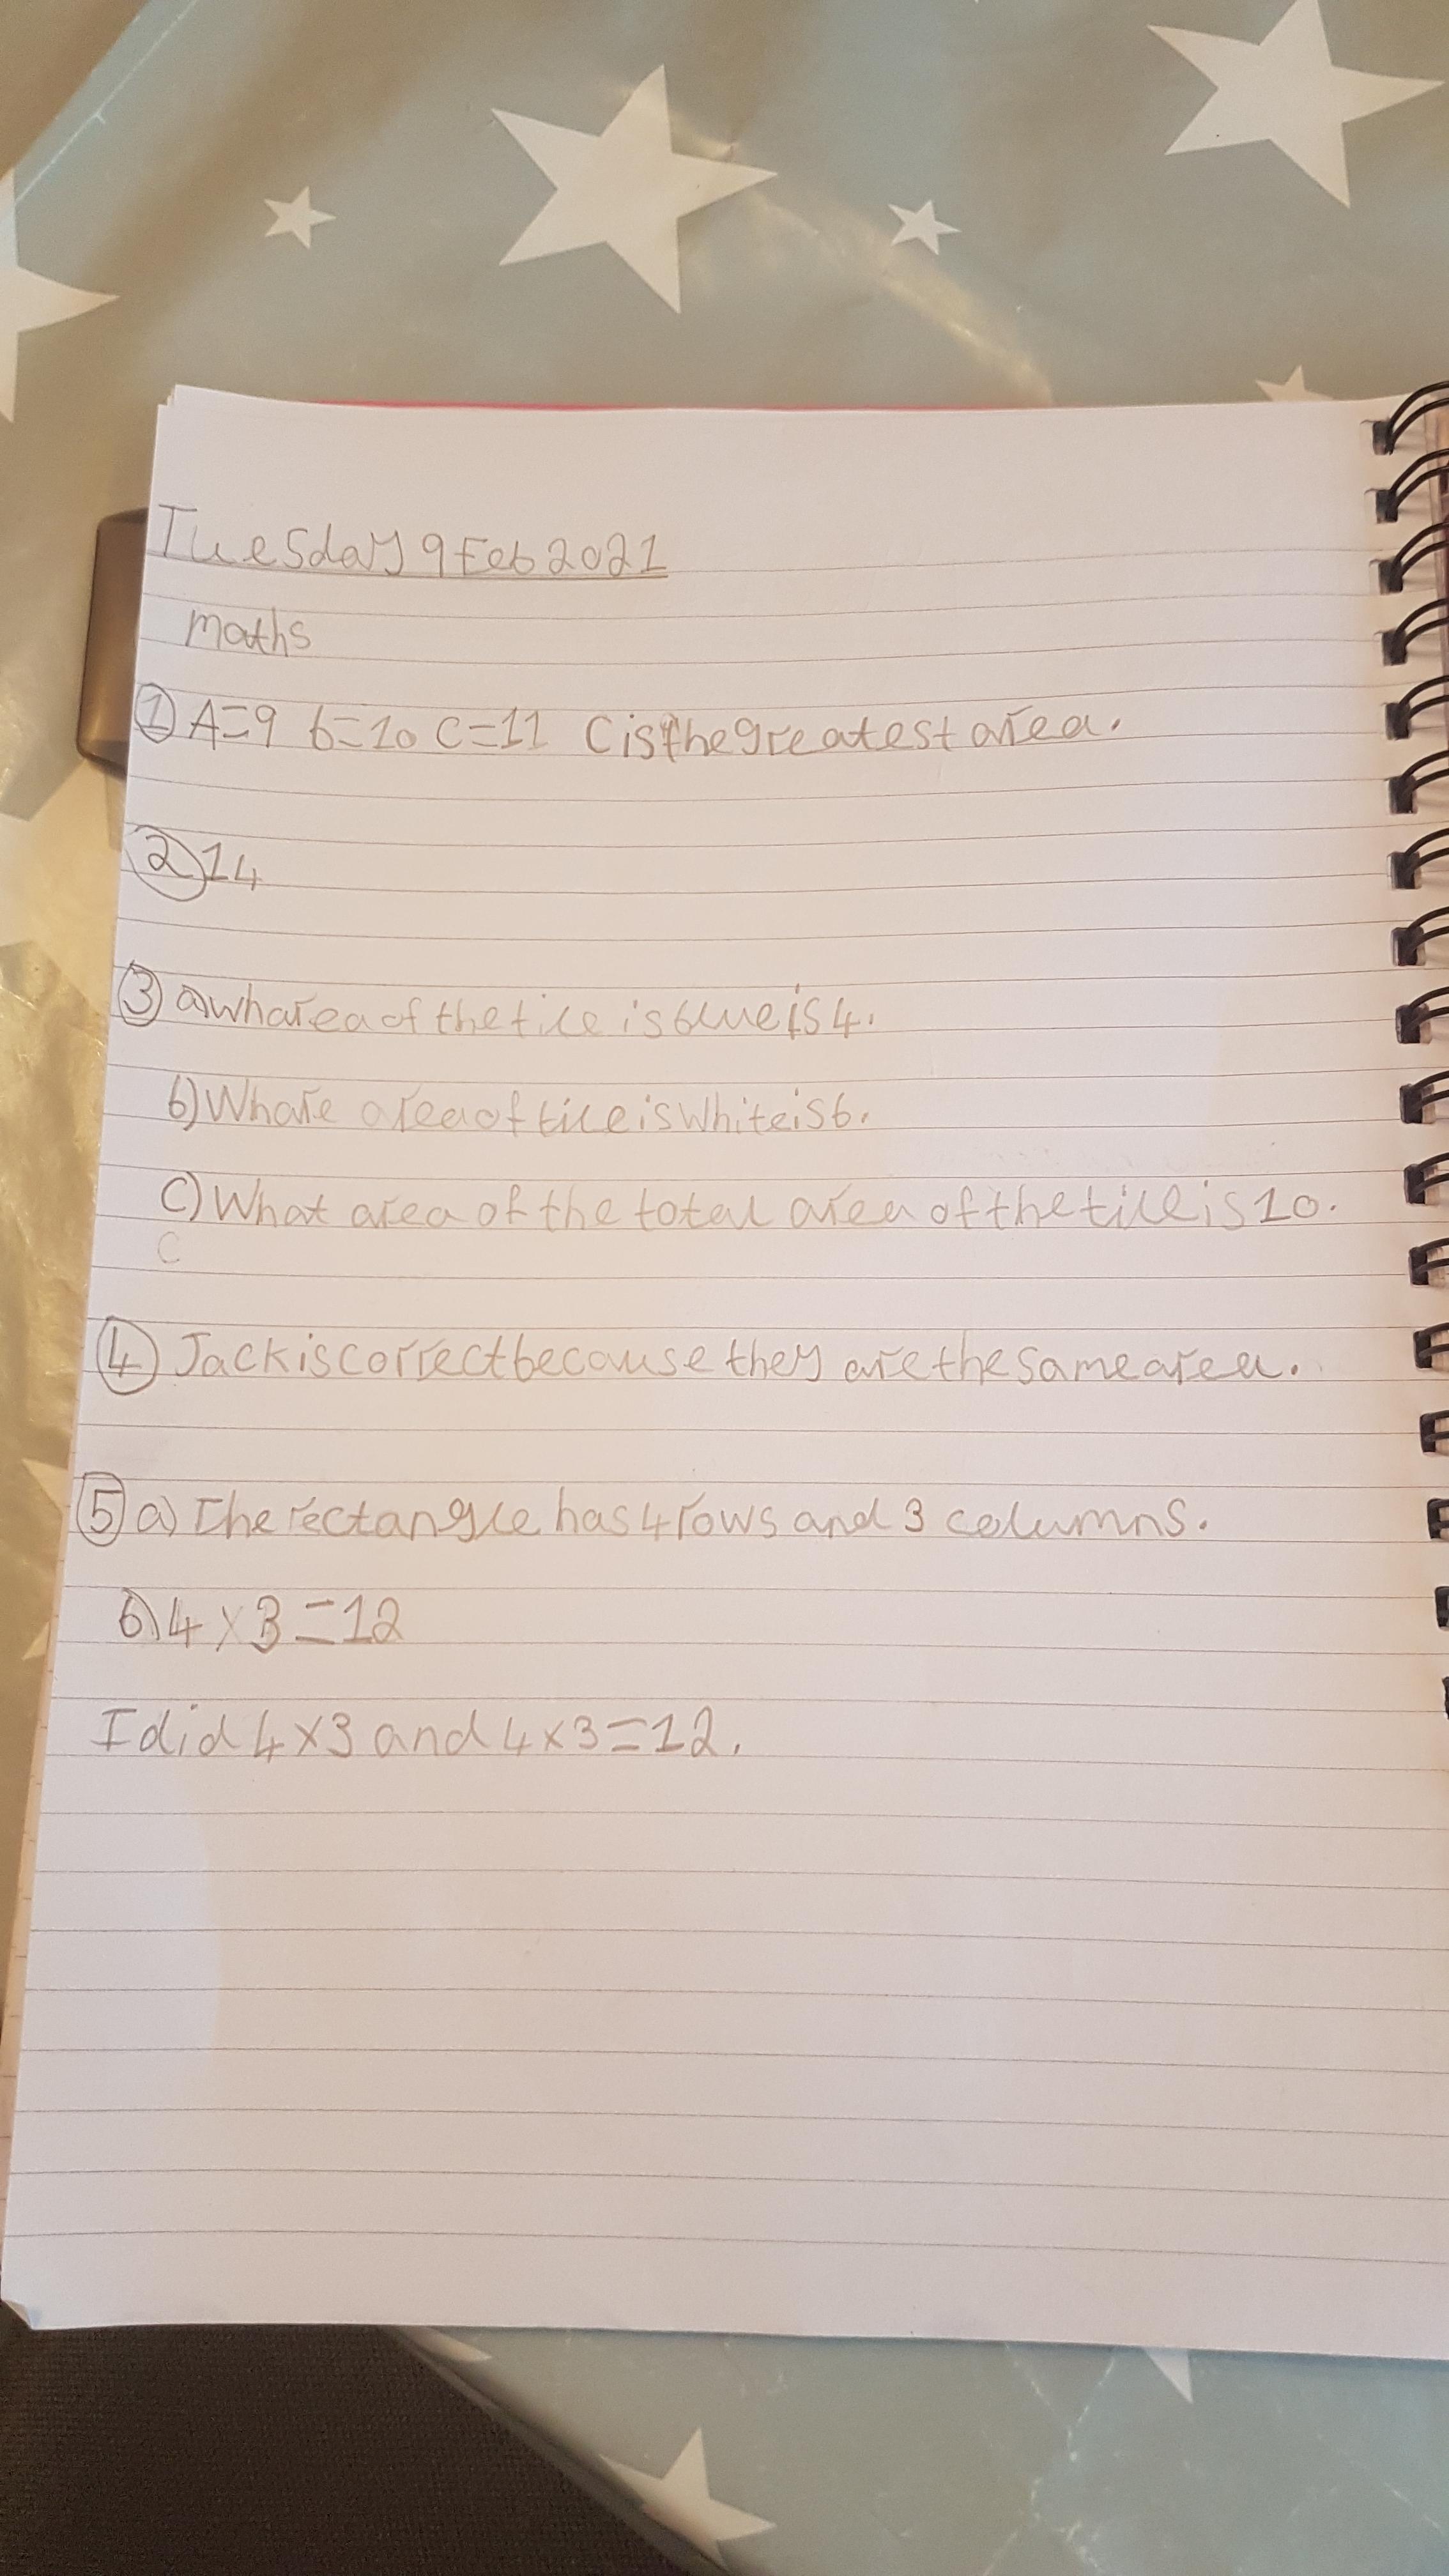 Tuesday 9 Feb 2021
maths
① A=9 b=10 C=11 C is the greatest area.
② 14
③ a wharea of the tile is blue is 4.
b) Whare area of tile is White is 6.
C) What area of the total area of the tile is 10.
C
④ Jack is correct because they are the same area.
⑤ a) The rectangle has 4 rows and 3 columns.
b) 4 x 3 = 12
I did 4 x 3 and 4 x 3 = 12.